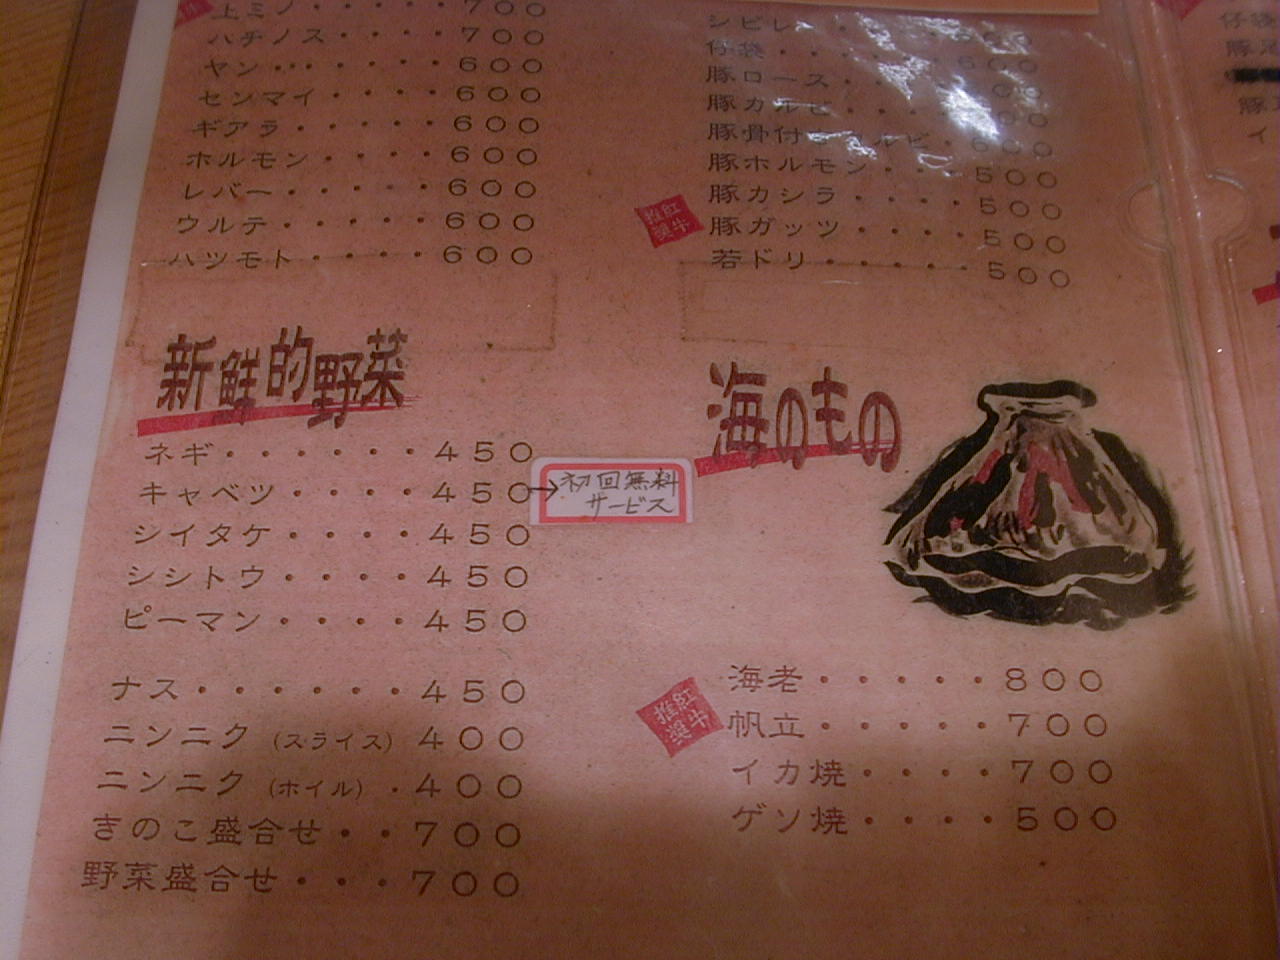 上ミノ・・・・・700
ハチノス・・・・・700
ヤン・・・・・・・600
センマイ・・・・600
ギアラ・・・・・600
ホルモン・・・・600
レバー・・・・・600
ウルテ・・・・・600
ハツモト・・・・600
新鮮的野菜
ネギ・・・・・・450
キャベツ・・・・450
→初回無料
サービス
シイタケ・・・・450
シシトウ・・・・450
ピーマン・・・・450
ナス・・・・・・450
ニンニク(スライス)400
ニンニク(ホイル)・400
きのこ盛合せ・・700
野菜盛合せ・・・700
シビレ・・・・・600
仔袋・・・・・・600
豚ロース・・・
豚カルビ・・・
豚骨付きカルビ・600
豚ホルモン・・・500
豚カシラ・・・・500
紅牛推奨
豚ガッツ・・・・500
若ドリ・・・・・500
海のもの
海老・・・・・800
紅牛推奨
帆立・・・・・700
イカ焼・・・・700
ゲソ焼・・・・500
仔袋